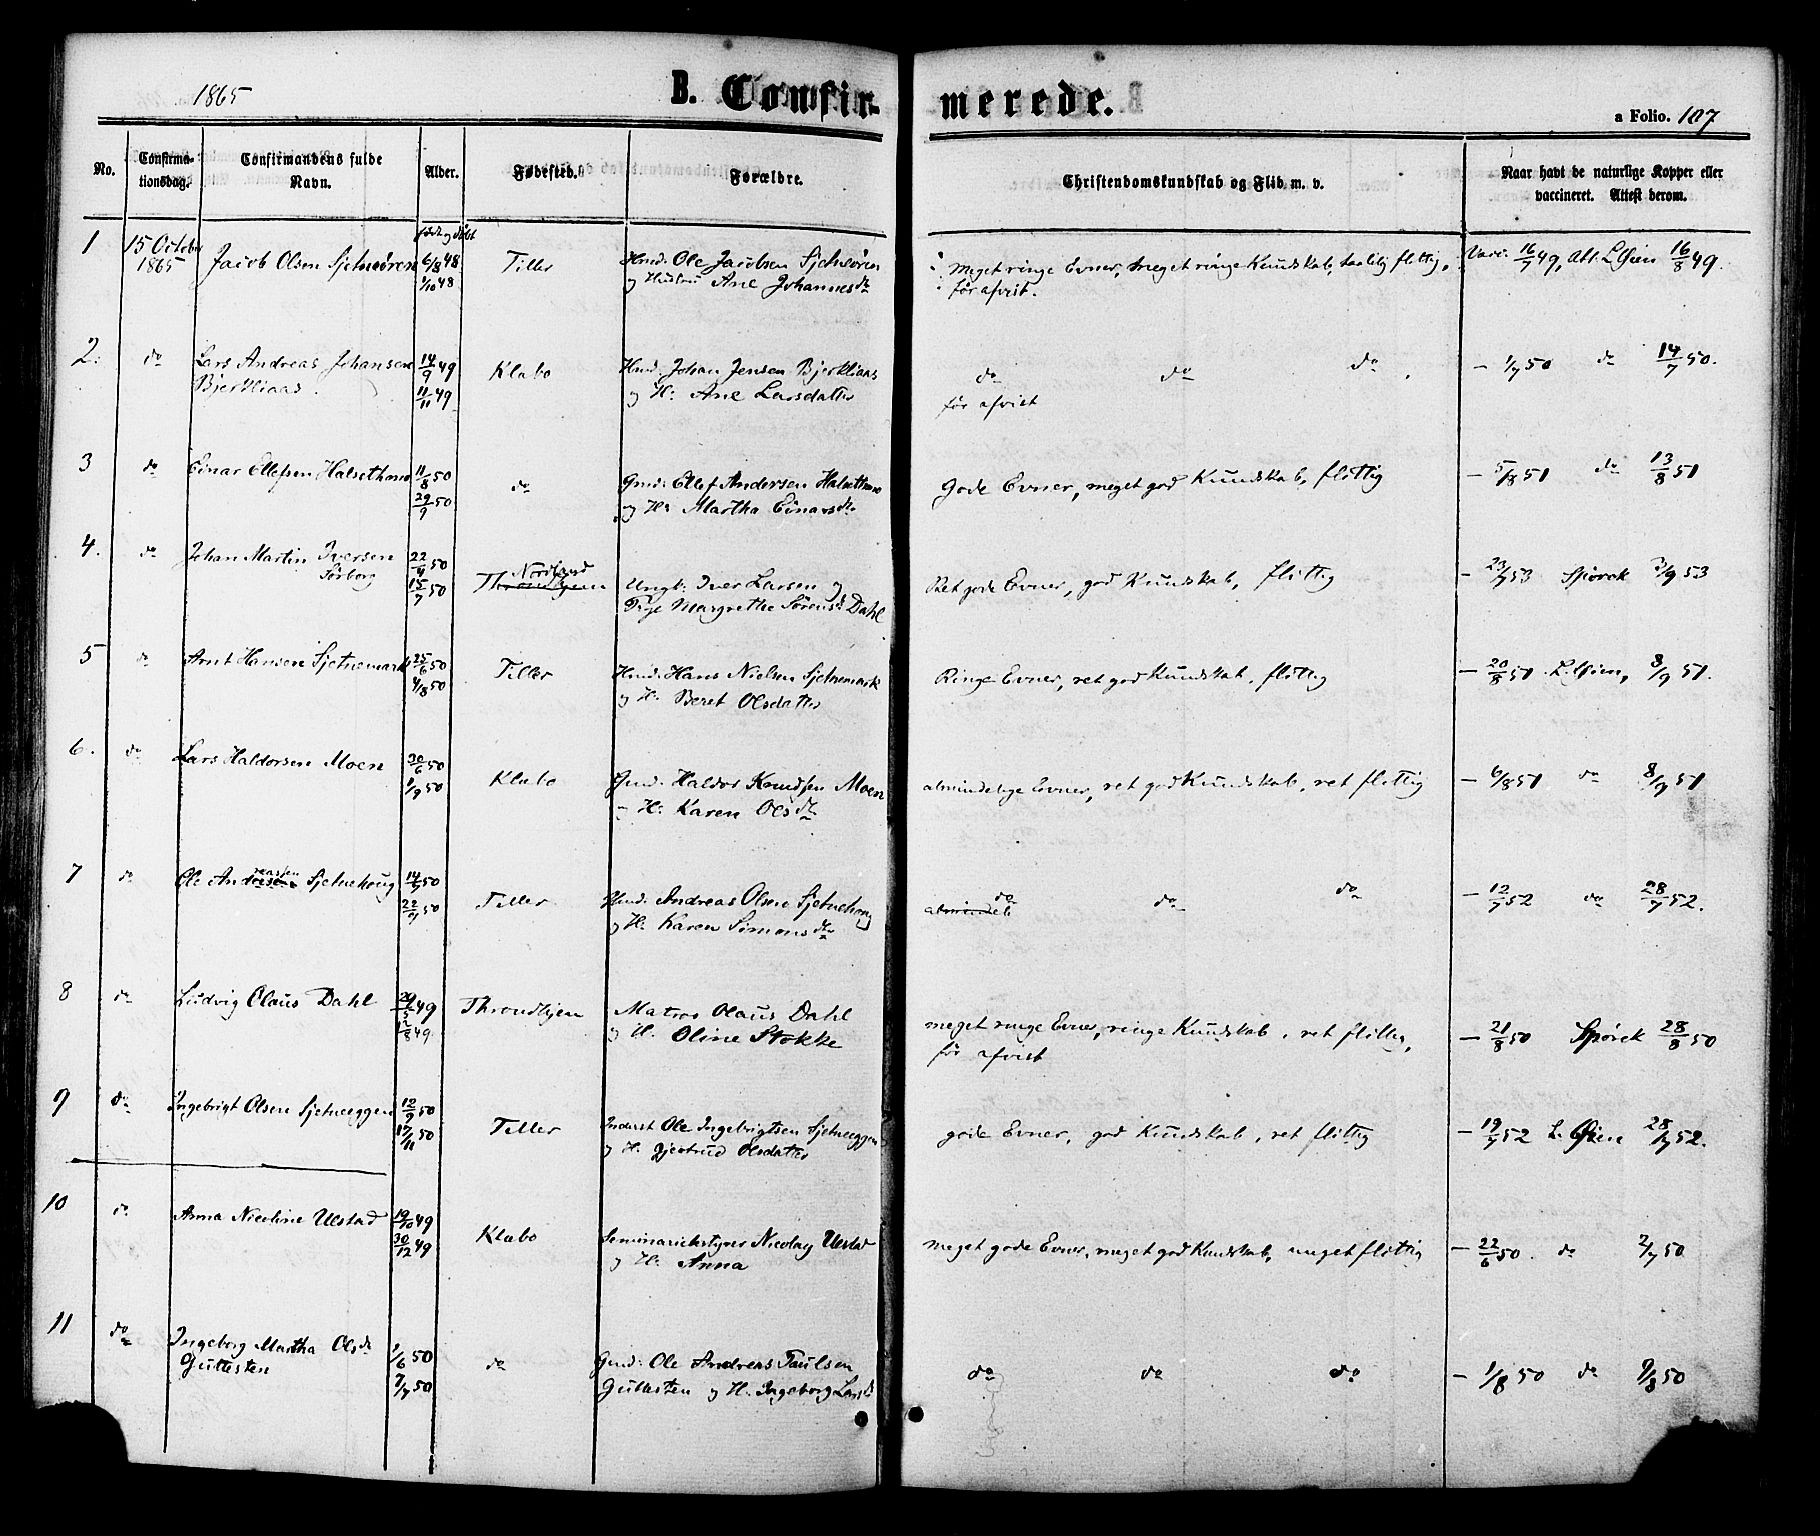 1865
B. Confirmerede.
a Folio. 107
No.
Confirmationsdag.
Confirmandens fulde Navn.
Alder.
Fødested.
Forældre.
Christendomskundskab og Flid m. v.
Naar havt de naturlige Kopper eller vaccineret. Attest derom.
født og døbt
1 15 October 1865 Jacob Olsen Sjetneören 6/8 48 1/10 48 Tiller Hmd. Ole Jacobsen Sjetneören og Hustru Ane Johannesdr
Meget ringe Evner, meget ringe Kundskab, taalelig flittig, før afvist. Vacc. 16/7 49, Att. L. Øien 16/8 49.
2. do Lars Andreas Johansen Bjerkliaas. 14/9 49 11/11 49. Klæbo Hmd. Johan Jensen Bjerkliaas og H: Ane Larsdatter
do do do før afvist – 1/7 50 do 14/7 50.
3 do Einar Ellefsen Halsethmo 11/8 50 29/9 50 do Gmd. Ellef Andersen Halsethmo og H: Martha Einarsdr
Gode Evner, meget god Kundskab, flittig – 5/8 51 do 13/8 51
4. do Johan Martin Iversen Sørborg 22/4 50 15/7 50 Nordland Throndhjem Ungk: Iver Larsen og Pige Margrethe Sørensd. Dahl
Ret gode Evner, god Kundskab, flittig – 23/7 53 Spörck 3/9 53
5 do Arnt Hansen Sjetnemark 25/6 50 4/8 50 Tiller Hmd. Hans Nielsen Sjetnemark og H: Beret Olsdatter
Ringe Evner, ret god Kundskab, flittig – 20/8 51 L. Øien, 8/9 51.
6. do Lars Haldorsen Moen 30/6 50 1/9 50 Klæbo Gmd. Haldor Knudsen Moen – H: Karen Olsdr
almindelige Evner, ret god Kundskab, ret flittig – 6/8 51 do 8/9 51
7 do Ole Andreassen Sjetnehaug 14/7 50 22/9 50 Tiller Hmd. Andreas Olsen Sjetnehaug og H. Karen Simonsdr
almindeli do do do – 12/7 52 do 28/7 52.
8 do Ludvig Olaus Dahl 29/5 49 12/8 49. Throndhjem Matros Olaus Dahl og H. Oline Stokke
meget ringe Evner, ringe Kundskab, ret flittig, før afvist – 21/8 50 Spörck 28/8 50
9 do Ingebrigt Olsen Sjetneeggen 12/9 50 17/11 50 Tiller Inderst Ole Ingebrigtsen Sjetneeggen og H. Gjertrud Olsdatter
gode Evner, god Kundskab, ret flittig – 19/7 52 L. Øien 28/7 52.
10 do Anna Nicoline Ulstad 19/10 49 30/12 49 Klæbo Seminariebestyrer Nicolay Ulstad og H: Anna
Meget gode Evner, meget god Kundskab, meget flittig – 22/6 50. do 2/7 50
11 do Ingeborg Martha Olsdr Guttesten 1/6 50 7/7 50 do Gmd: Ole Andreas Paulsen Guttesten og H. Ingeborg Larsdr
do do do – 1/8 50 do 9/8 50